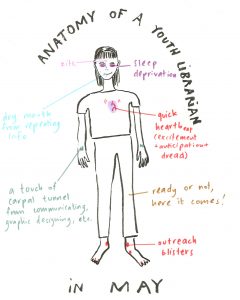 ANATOMY OF A YOUTH LIBRARIAN
zits
sleep
deprivation
dry mouth
from repeating
info
quick
heartbeat
(excitement
+ anticipation +
dread)
a touch of
carpal tunnel
from communicating,
graphic designing, etc.
ready or not,
here it comes!
outreach
blisters
in MAY